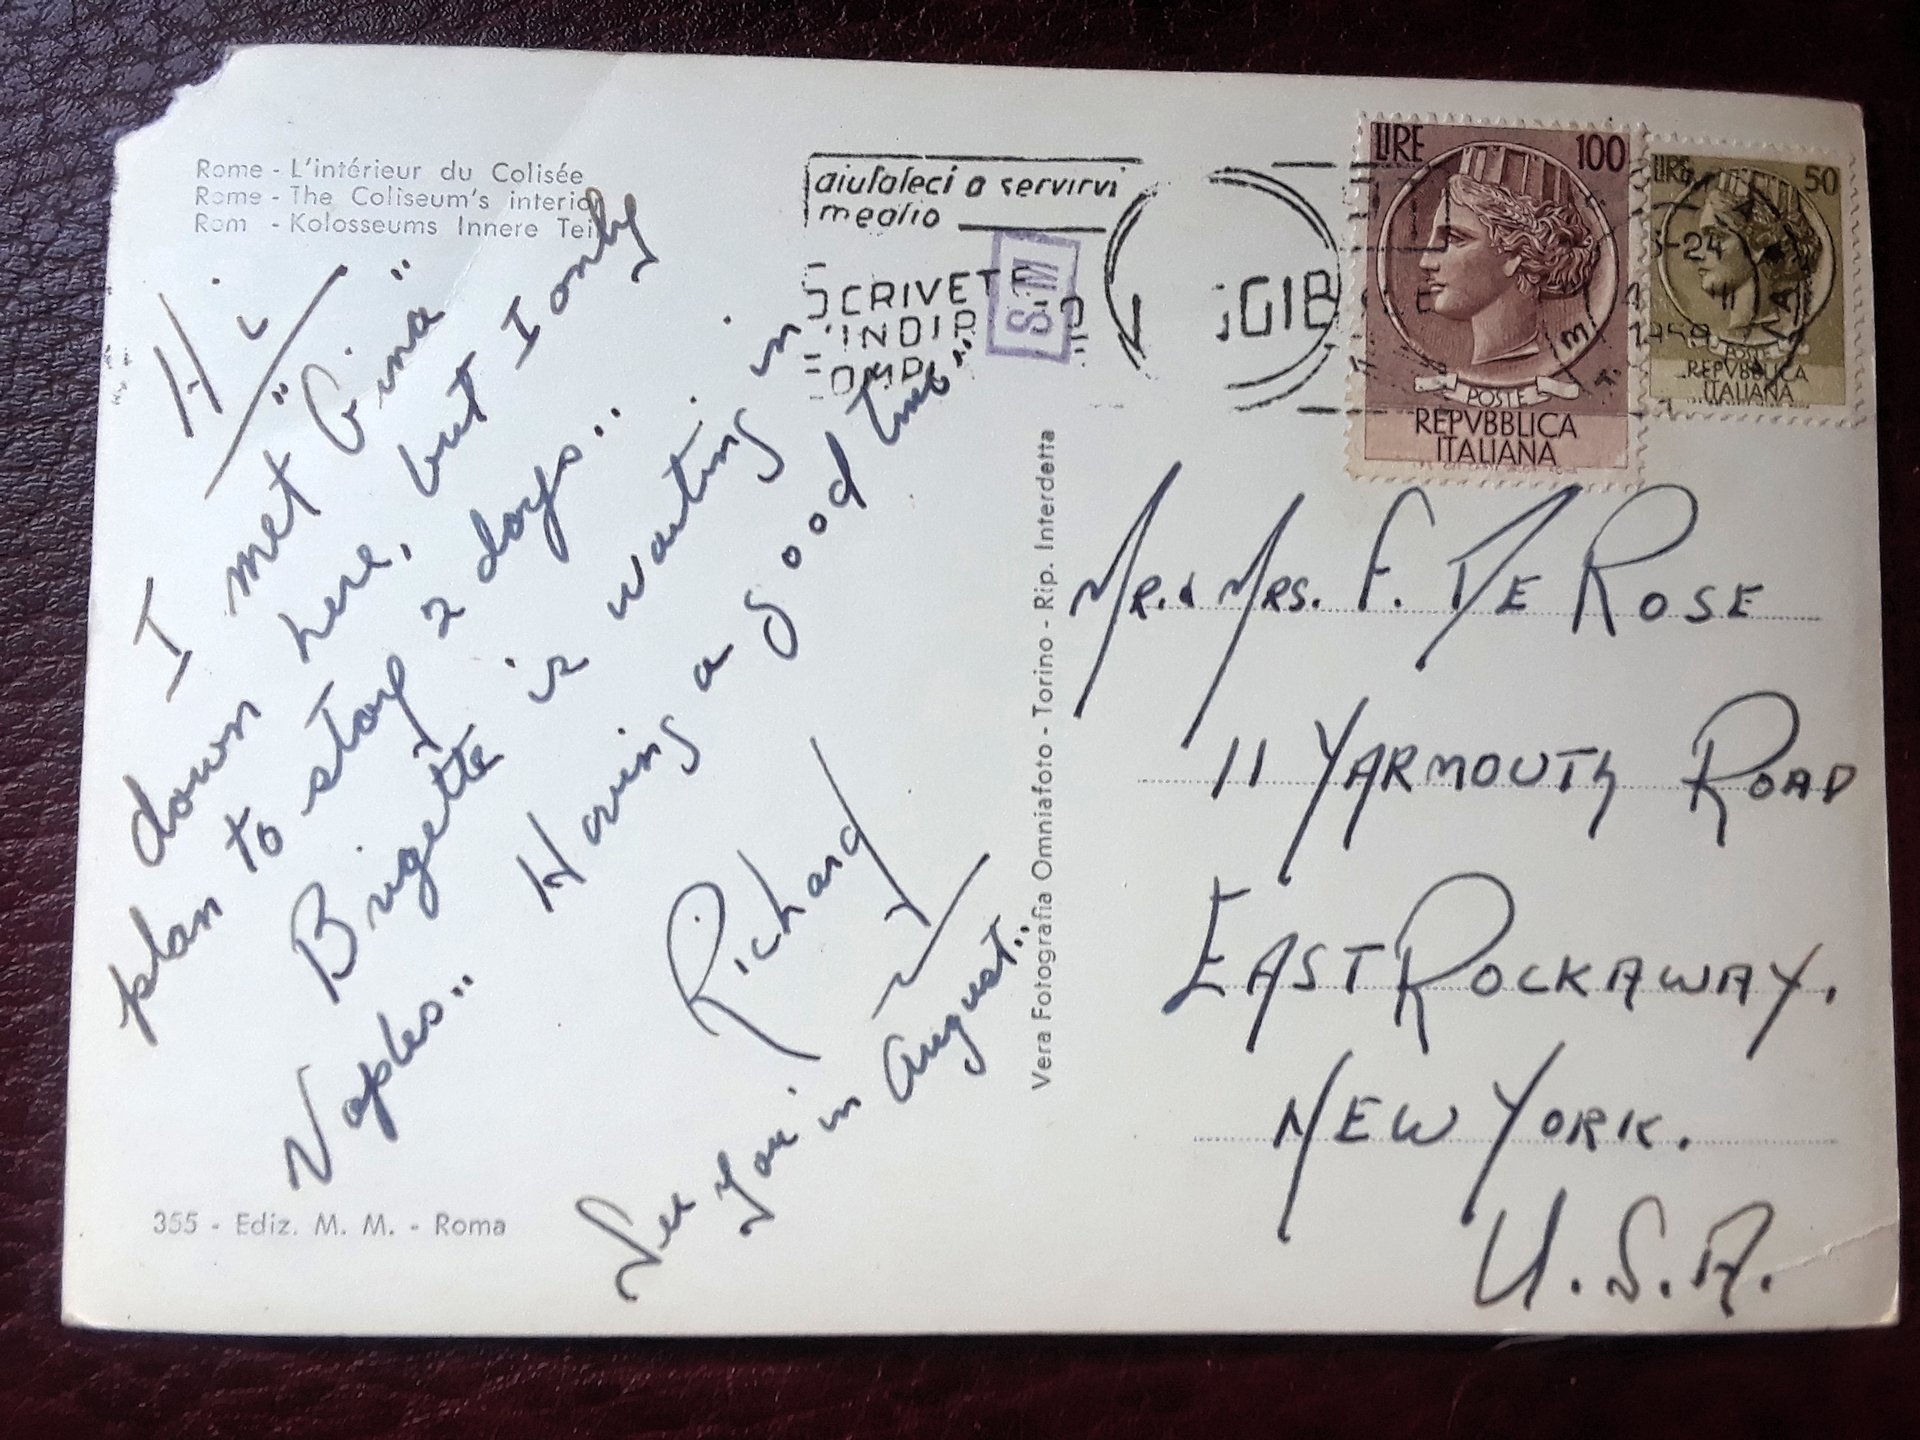 Rome - L'intérieur du Colisée
Rome - The Coliseum's interio
Rom - Kolosseums Innere Teil
Hi
I met "Gina"
down here, but I only
plan to stay 2 days..
Brigette is waiting in
Naples.. Having a good time..
Richard
See you in August..
355 - Ediz. M. M. - Roma
Vera Fotografia Omniafoto - Torino - Rip. Interdetta
aiutateci a servirvi
meglio
SCRIVETE
S.M
LIRE 100
POSTE
REPVBBLICA
ITALIANA
LIRE 50
POSTE
REPVBBLICA
ITALIANA
1959
MR. & MRS. F. DE ROSE
11 YARMOUTH ROAD
EAST ROCKAWAY.
NEW YORK.
U.S.A.